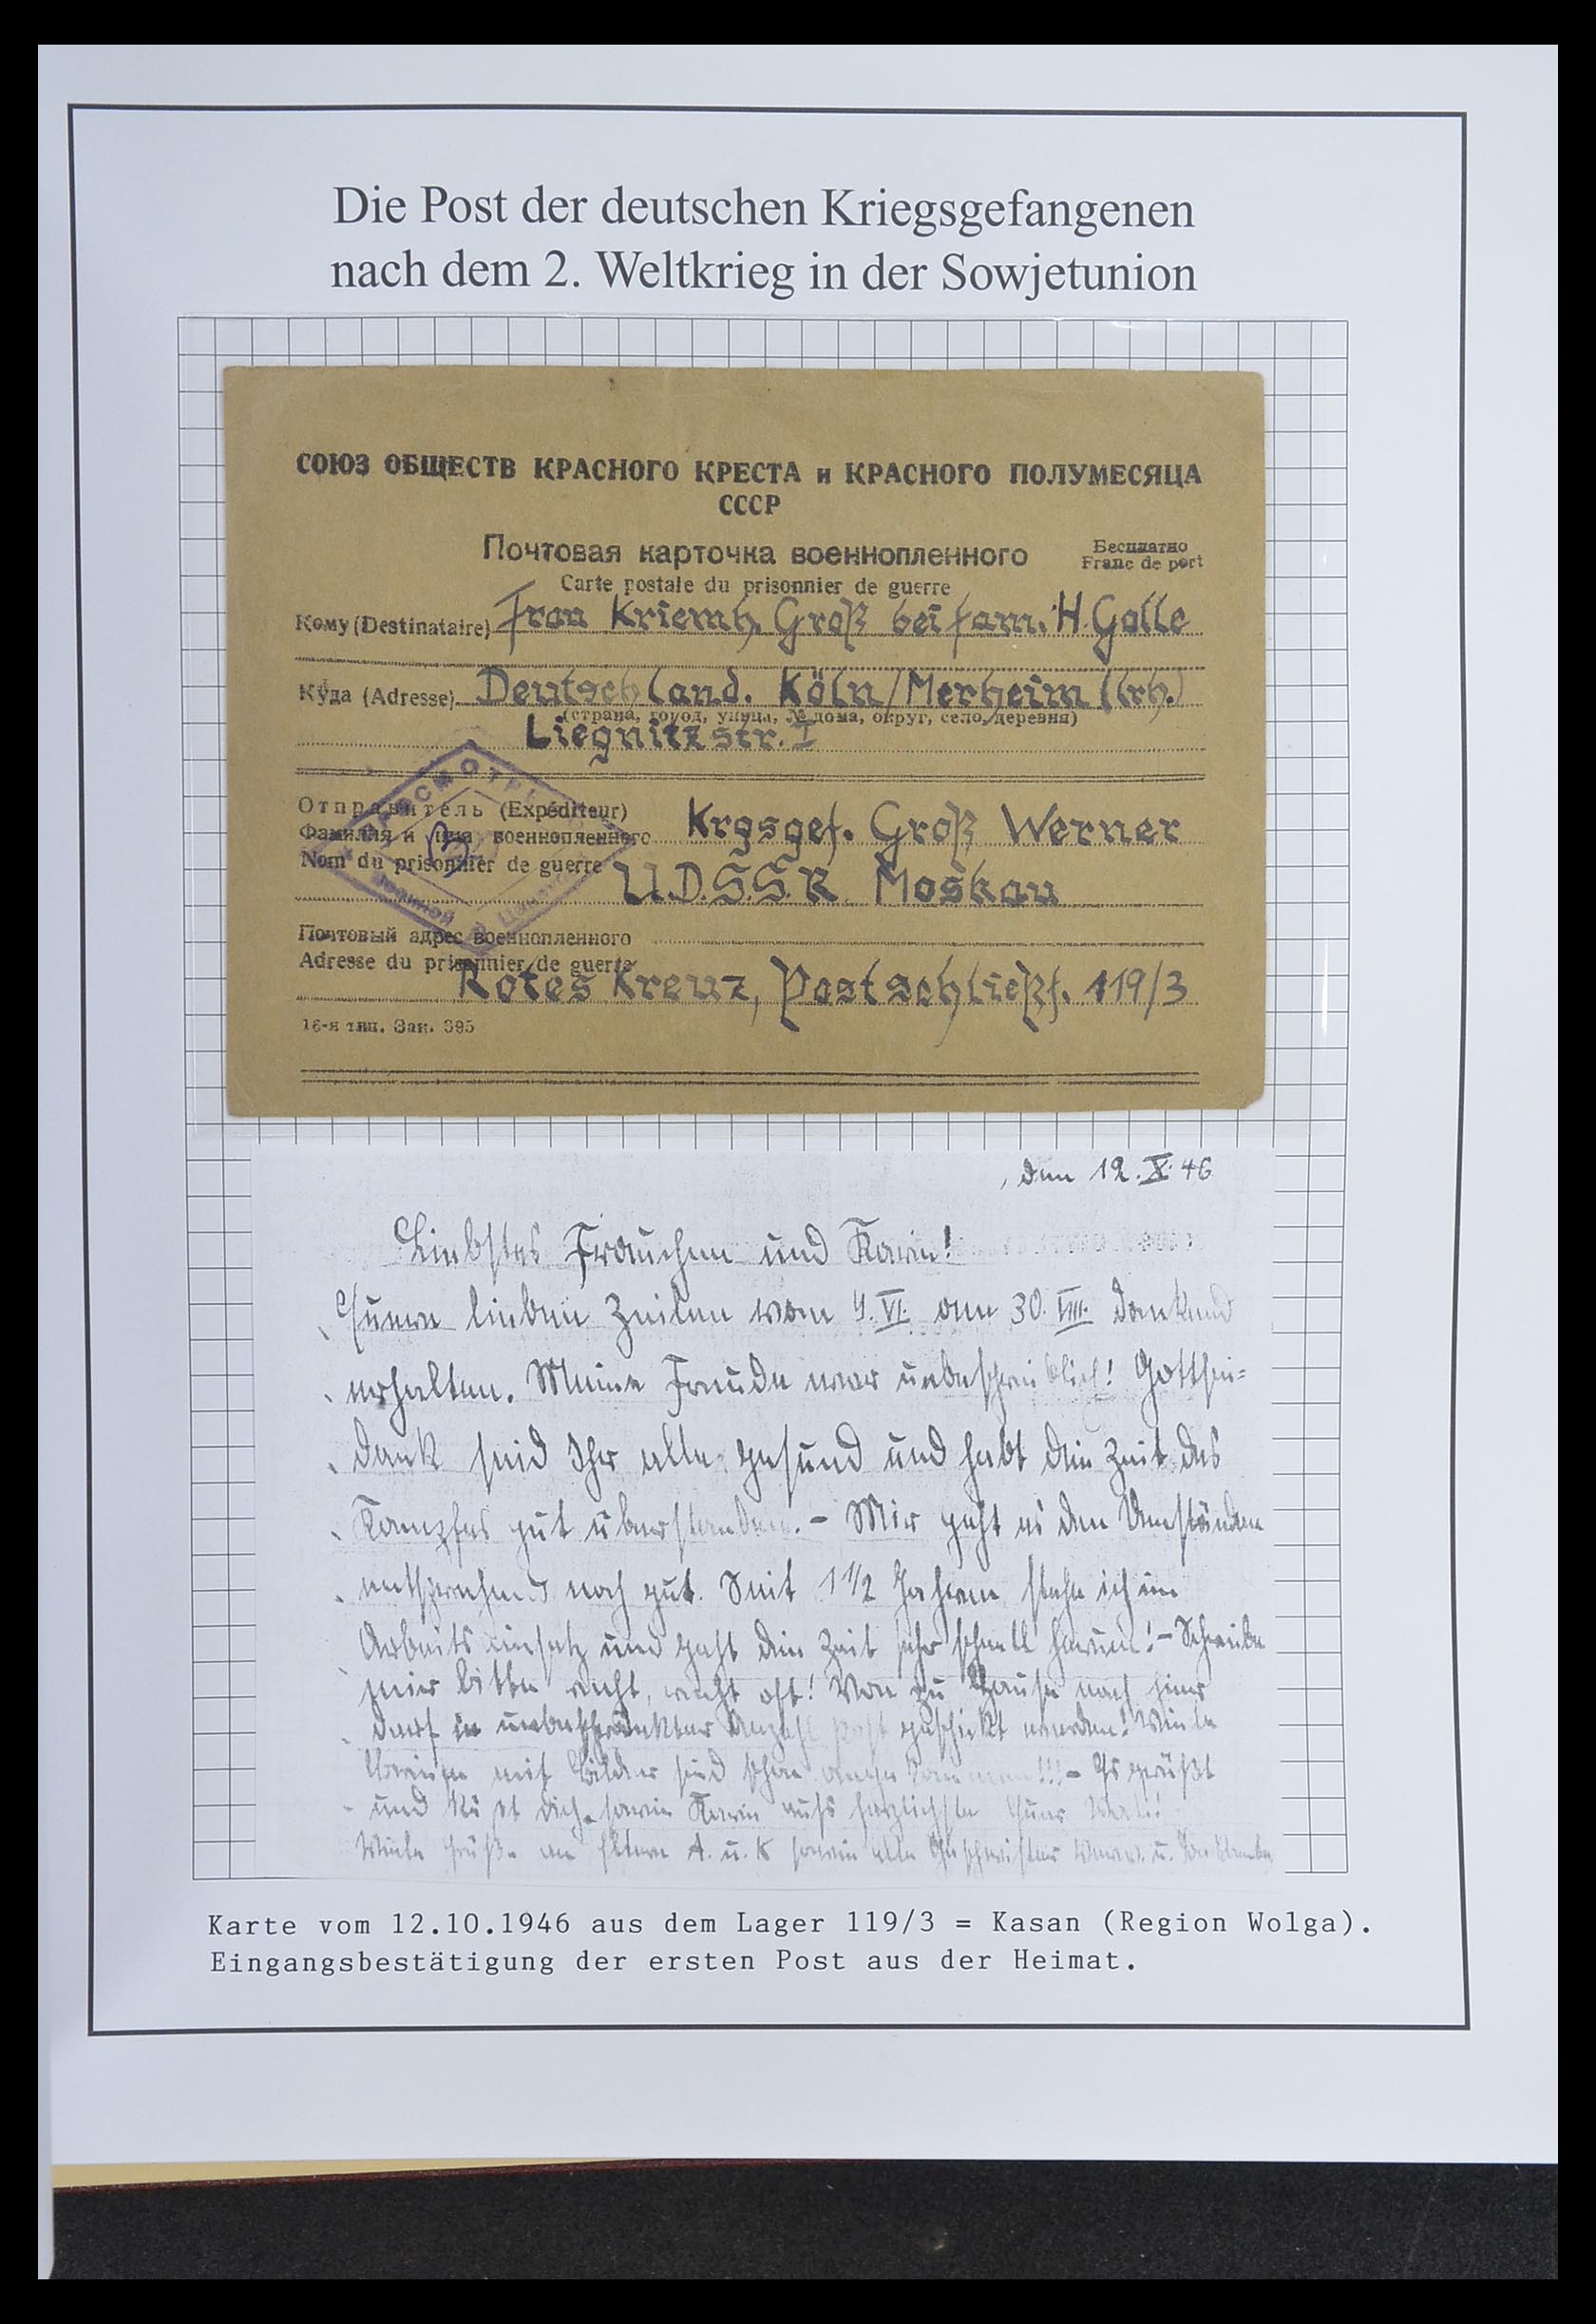 Die Post der deutschen Kriegsgefangenen
nach dem 2. Weltkrieg in der Sowjetunion
СОЮЗ ОБЩЕСТВ КРАСНОГО КРЕСТА и КРАСНОГО ПОЛУМЕСЯЦА
СССР
Почтовая карточка военнопленного
Бесплатно
Franc de port
Carte postale du prisonnier de guerre
Кому (Destinataire) Frau Kriemh. Groß bei fam. H. Galle
Куда (Adresse) Deutschland. Köln/Merheim (lrh.)
(страна, город, улица, № дома, округ, село, деревня)
Liegnitzstr. I
Отправитель (Expéditeur)
Фамилия и имя военнопленного Krgsgef. Groß Werner
Nom du prisonnier de guerre
U.D.S.S.R. Moskau
Почтовый адрес военнопленного
Adresse du prisonnier de guerre
Rotes Kreuz, Postschließf. 119/3
16-я тип. Зак. 395
, den 12.X.46
Liebstes Frauchen und Karin!
Euere lieben Zeilen vom 4.VI. am 30.VIII. dankend
erhalten. Meine Freude war unbeschreiblich! Gottsei-
dank seid Ihr alle gesund und habt die Zeit des
Kampfes gut überstanden. - Mir geht es den Umständen
entsprechend noch gut. Seit 1 1/2 Jahren stehe ich im
Arbeitseinsatz und geht die Zeit sehr schnell herum! - Schreibe
mir bitte recht, recht oft! Von zu Hause nach hier
darf in unbeschränkter Anzahl Post geschickt werden! Viele
mit Bilder sind schon !!! - Es grüßt
und küßt Dich sowie Karin aufs herzlichste Euer
Viele Grüße an Eltern A. u. K sowie alle Geschwister
Karte vom 12.10.1946 aus dem Lager 119/3 = Kasan (Region Wolga).
Eingangsbestätigung der ersten Post aus der Heimat.